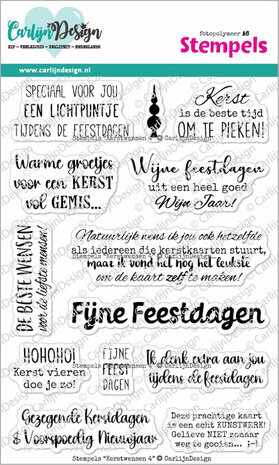 CarlijnDesign
HIP - VROLIJK - KWALITEIT - NEDERLANDS
www.carlijndesign.nl
fotopolymeer A6
Stempels
SPECIAAL VOOR JOU
EEN LICHTPUNTJE
TIJDENS DE FEESTDAGEN
Kerst
is de beste tijd
OM TE PIEKEN!
Warme groetjes
voor een KERST
vol GEMIS...
Wijne feestdagen
uit een heel goed
Wijn Jaar!
DE BESTE WENSEN
voor de liefste mensen!
Natuurlijk wens ik jou ook hetzelfde
als iedereen die kerstkaarten stuurt,
maar ik vond het nog het leukste
om de kaart zelf te maken!
Fijne Feestdagen
HOHOHO!
Kerst vieren
doe je zo!
FIJNE
FEEST
DAGEN
Ik denk extra aan jou
tijdens de feestdagen
Gezegende Kerstdagen
& Voorspoedig Nieuwjaar
Deze prachtige kaart
is een echt KUNSTWERK!
Gelieve NIET zomaar
weg te gooien... ;-)
Stempels "Kerstwensen 4" © CarlijnDesign